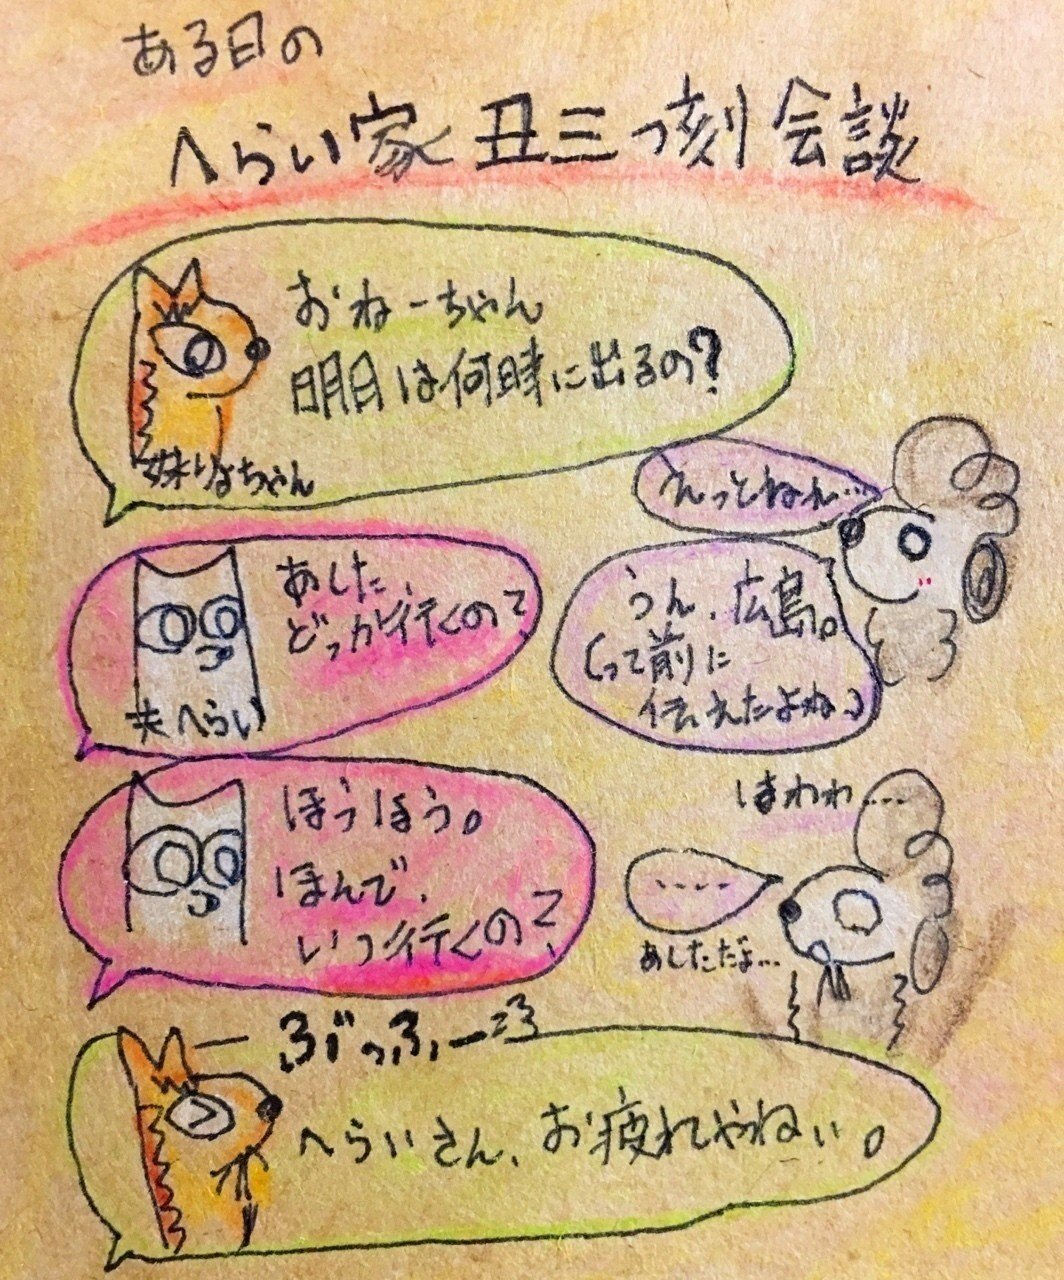 ある日の
へらい家 丑三つ刻 会談
おねーちゃん
明日は何時に出るの?
妹りよちゃん
えっとねぇ…
あした、
どっか行くの?
夫へらい
うん、広島。
(って前に
伝えたよね)
ほうほう。
ほんで、
いつ行くの?
はわわ…
....
あしただよ…
ぶっふー=3
へらいさん、お疲れやねぃ。